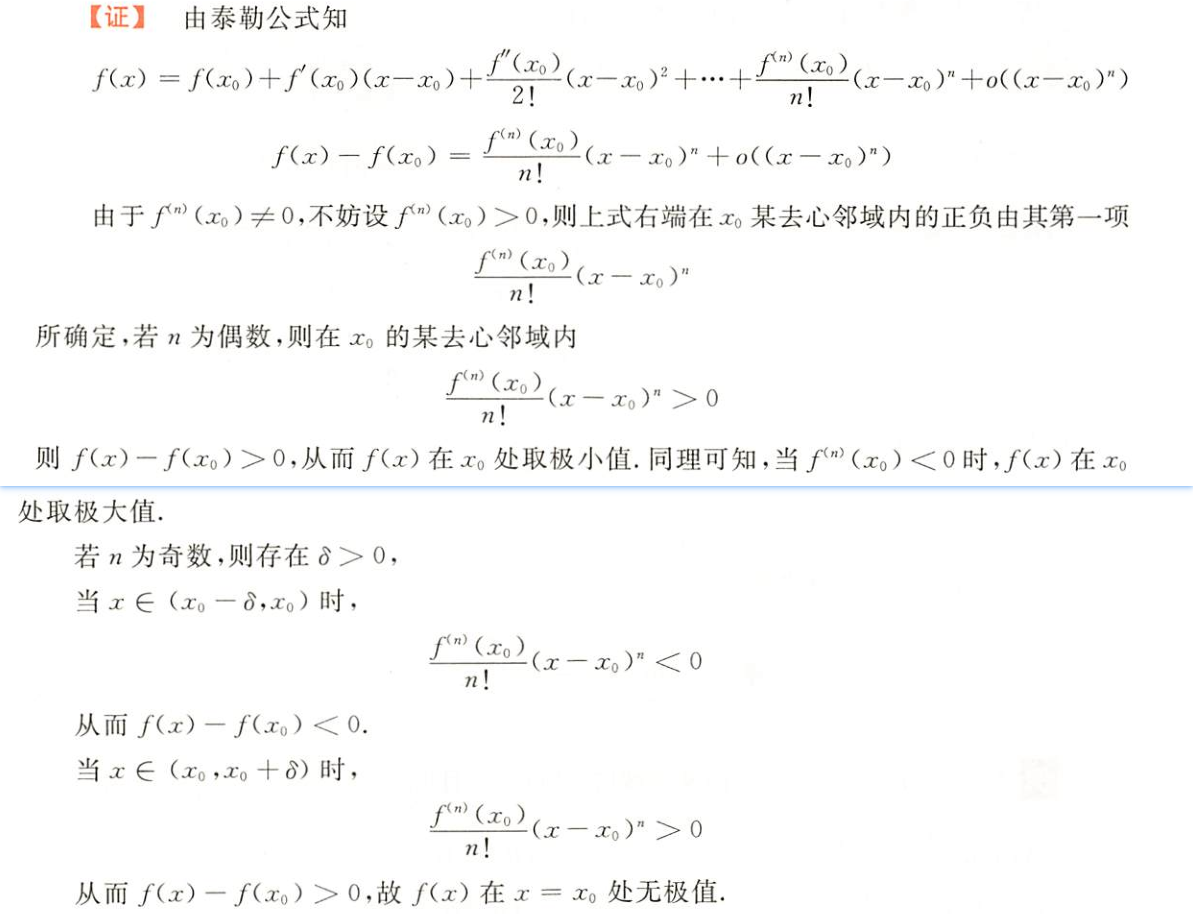 【证】 由泰勒公式知
f(x) = f(x₀)+f′(x₀)(x−x₀)+\frac{f″(x₀)}{2!}(x−x₀)²+⋯+\frac{f⁽ⁿ⁾(x₀)}{n!}(x−x₀)ⁿ+o((x−x₀)ⁿ)
f(x)−f(x₀) = \frac{f⁽ⁿ⁾(x₀)}{n!}(x−x₀)ⁿ+o((x−x₀)ⁿ)
由于 f⁽ⁿ⁾(x₀)≠0,不妨设 f⁽ⁿ⁾(x₀)>0,则上式右端在 x₀ 某去心邻域内的正负由其第一项
\frac{f⁽ⁿ⁾(x₀)}{n!}(x−x₀)ⁿ
所确定,若 n 为偶数,则在 x₀ 的某去心邻域内
\frac{f⁽ⁿ⁾(x₀)}{n!}(x−x₀)ⁿ>0
则 f(x)−f(x₀)>0,从而 f(x) 在 x₀ 处取极小值.同理可知,当 f⁽ⁿ⁾(x₀)<0 时,f(x) 在 x₀
处取极大值.
若 n 为奇数,则存在 δ>0,
当 x∈(x₀−δ,x₀) 时,
\frac{f⁽ⁿ⁾(x₀)}{n!}(x−x₀)ⁿ<0
从而 f(x)−f(x₀)<0.
当 x∈(x₀,x₀+δ) 时,
\frac{f⁽ⁿ⁾(x₀)}{n!}(x−x₀)ⁿ>0
从而 f(x)−f(x₀)>0,故 f(x) 在 x = x₀ 处无极值.